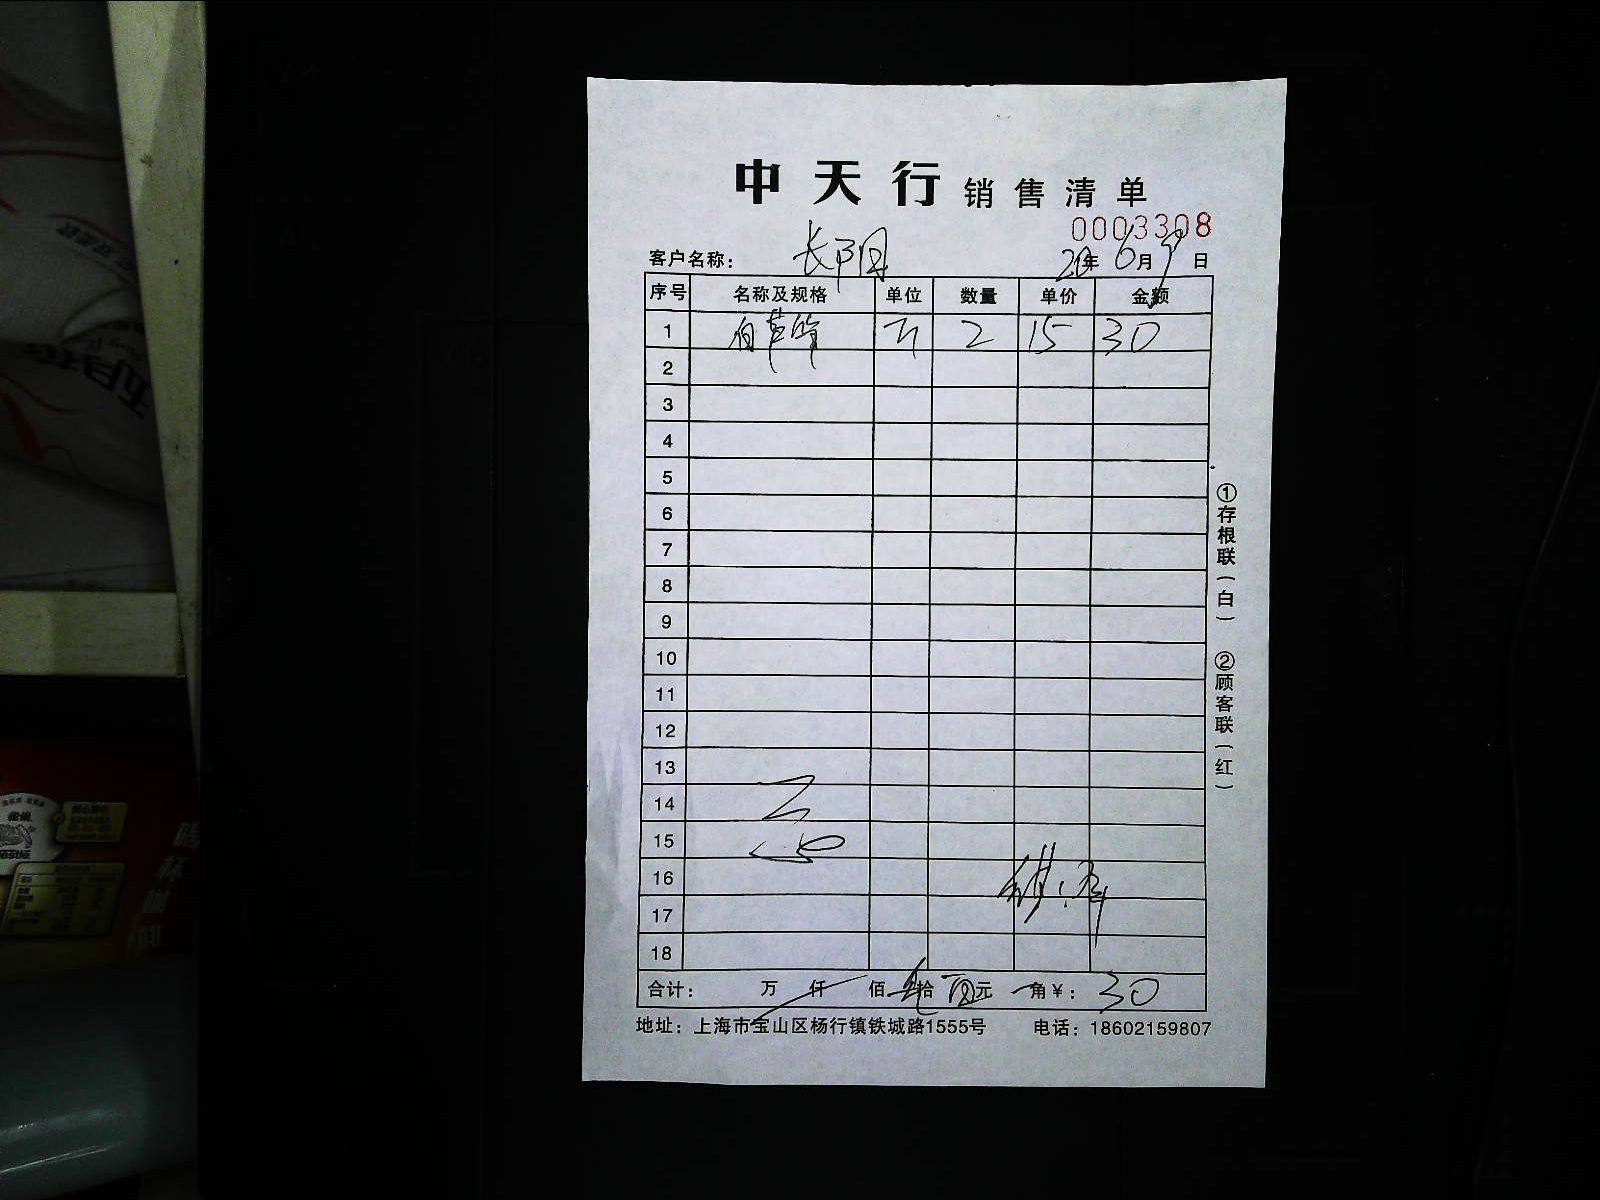 中天行 销售清单
0003308
客户名称： 长阳 20年6月9日
序号 名称及规格 单位 数量 单价 金额
1 白芦笋 斤 2 15 30
2
3
4
5
6
7
8
9
10
11
12
13
14
15
16
17
18
合计： 万 仟 佰 叁拾 元 角¥： 30
地址：上海市宝山区杨行镇铁城路1555号 电话：18602159807
①存根联(白) ②顾客联(红)